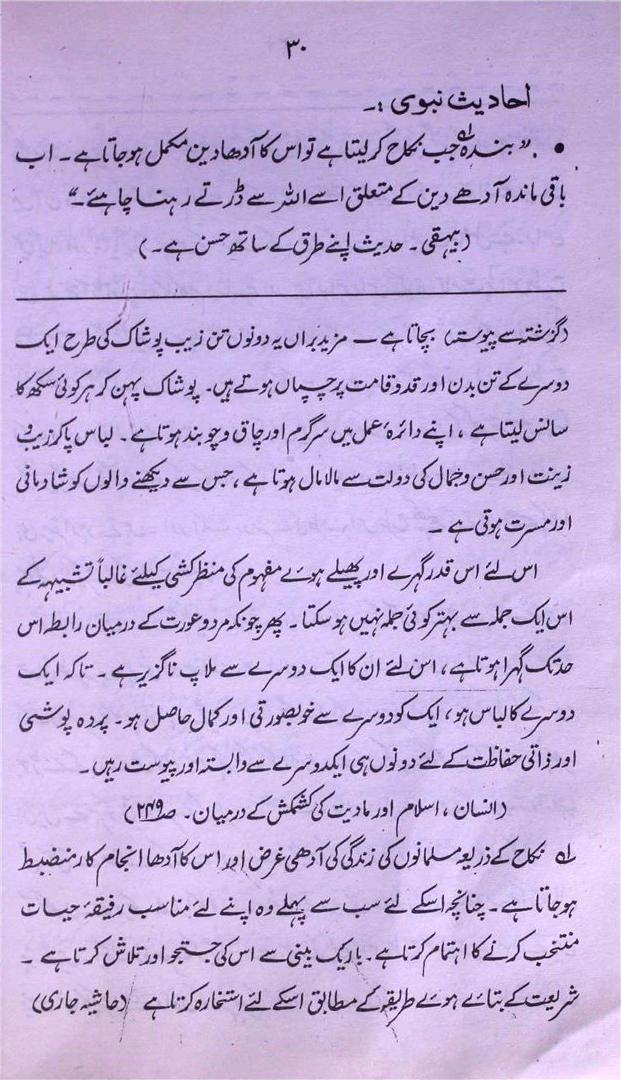 ۳۰
احادیث نبوی :۔
• "بندہ؂۱ جب نکاح کرلیتا ہے تو اس کا آدھا دین مکمل ہوجاتا ہے۔ اب
باقی ماندہ آدھے دین کے متعلق اسے اللہ سے ڈرتے رہنا چاہئے۔"
(بیہقی۔ حدیث اپنے طرق کے ساتھ حسن ہے۔)
(گزشتہ سے پیوستہ) بچاتا ہے ۔ مزید براں یہ دونوں تن زیب پوشاک کی طرح ایک
دوسرے کے تن بدن اور قد و قامت پر چسپاں ہوتے ہیں۔ پوشاک پہن کر ہر کوئی سکھ کا
سانس لیتا ہے ، اپنے دائرۂ عمل میں سرگرم اور چاق و چوبند ہوتا ہے۔ لباس پاکر زیب و
زینت اور حسن و جمال کی دولت سے مالا مال ہوتا ہے ، جس سے دیکھنے والوں کو شادمانی
اور مسرت ہوتی ہے ۔
اس لئے اس قدر گہرے اور پھیلے ہوئے مفہوم کی منظر کشی کیلئے غالباً تشبیہہ کے
اس ایک جملہ سے بہتر کوئی جملہ نہیں ہو سکتا۔ پھر چونکہ مرد و عورت کے درمیان رابطہ اس
حد تک گہرا ہوتا ہے ، اس لئے ان کا ایک دوسرے سے ملاپ ناگزیر ہے ۔ تاکہ ایک
دوسرے کا لباس ہو ، ایک کو دوسرے سے خوبصورتی اور کمال حاصل ہو۔ پردہ پوشی
اور ذاتی حفاظت کے لئے دونوں ہی ایکدوسرے سے وابستہ اور پیوست رہیں۔
(انسان ، اسلام اور مادیت کی کشمکش کے درمیان۔ ص۲۴۹)
؂۱ نکاح کے ذریعہ مسلمانوں کی زندگی کی آدھی غرض اور اس کا آدھا انجام کار منضبط
ہوجاتا ہے۔ چنانچہ اسکے لئے سب سے پہلے وہ اپنے لئے مناسب رفیقۂ حیات
منتخب کرنے کا اہتمام کرتا ہے۔ باریک بینی سے اس کی جستجو اور تلاش کرتا ہے ۔
شریعت کے بتائے ہوئے طریقہ کے مطابق اسکے لئے استخارہ کرتا ہے (حاشیہ جاری)